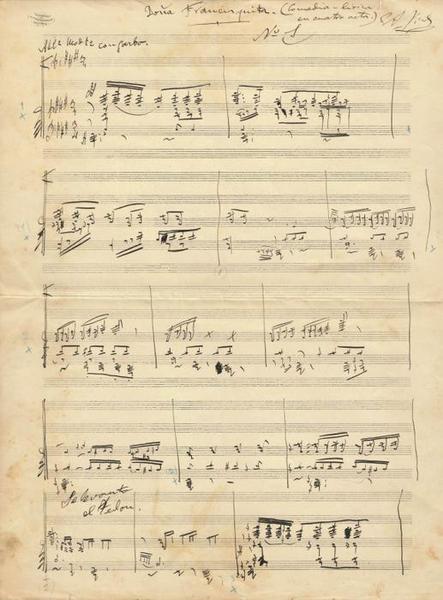 Doña Francisquita. (Comedia lírica
en cuatro actos)
Nº 1
Allº
con garbo.
Se levanta
el Telon.